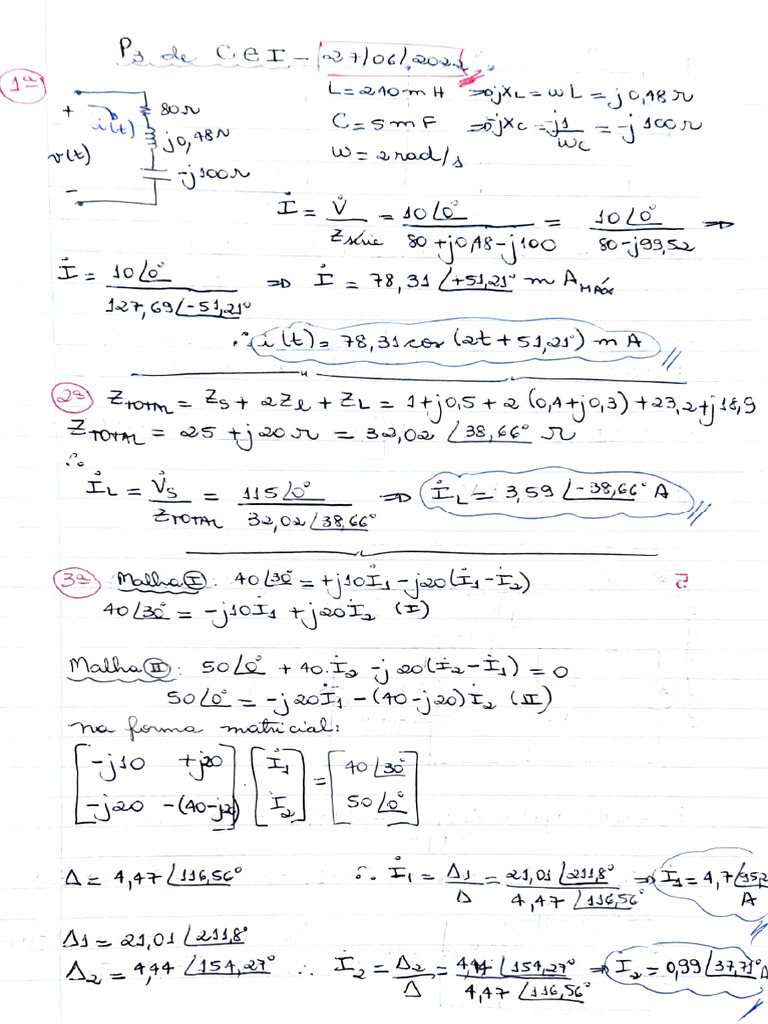 P3 de CEI – 27/06/2022.
1ª
L = 240mH ⇒ jXL = ωL = j0,48Ω
C = 5mF ⇒ jXC = -j1/ωC = -j100Ω
ω = 2rad/s
+
i(t)
v(t)
-
80Ω
j0,48Ω
-j100Ω
İ = V̇/Zsérie = 10∠0°/(80+j0,48-j100) = 10∠0°/(80-j99,52) ⇒
İ = 10∠0°/127,69∠-51,21° ⇒ İ = 78,31∠+51,21° mA MÁX
∴ i(t) = 78,31 cos(2t+51,21°) mA //
2ª ZTOTAL = ZS + 2Zl + ZL = 1+j0,5+2(0,4+j0,3)+23,2+j18,9
ZTOTAL = 25+j20Ω = 32,02∠38,66° Ω
∴
İL = V̇S/ZTOTAL = 115∠0°/32,02∠38,66° ⇒ İL = 3,59∠-38,66° A //
3ª Malha I: 40∠30° = +j10İ1 -j20(İ1-İ2)
40∠30° = -j10İ1 +j20İ2 (I)
Malha II: 50∠0° + 40.İ2 -j20(İ2-İ1) = 0
50∠0° = -j20İ1 -(40-j20)İ2 (II)
na forma matricial:
[-j10 +j20] . [İ1] = [40∠30°]
[-j20 -(40-j20)] [İ2] [50∠0°]
Δ = 4,47∠116,56° ∴ İ1 = Δ1/Δ = 21,01∠211,8°/4,47∠116,56° ⇒ İ1 = 4,7∠95,2 A
Δ1 = 21,01∠211,8°
Δ2 = 4,44∠154,27° ∴ İ2 = Δ2/Δ = 4,44∠154,27°/4,47∠116,56° ⇒ İ2 = 0,99∠37,71° A